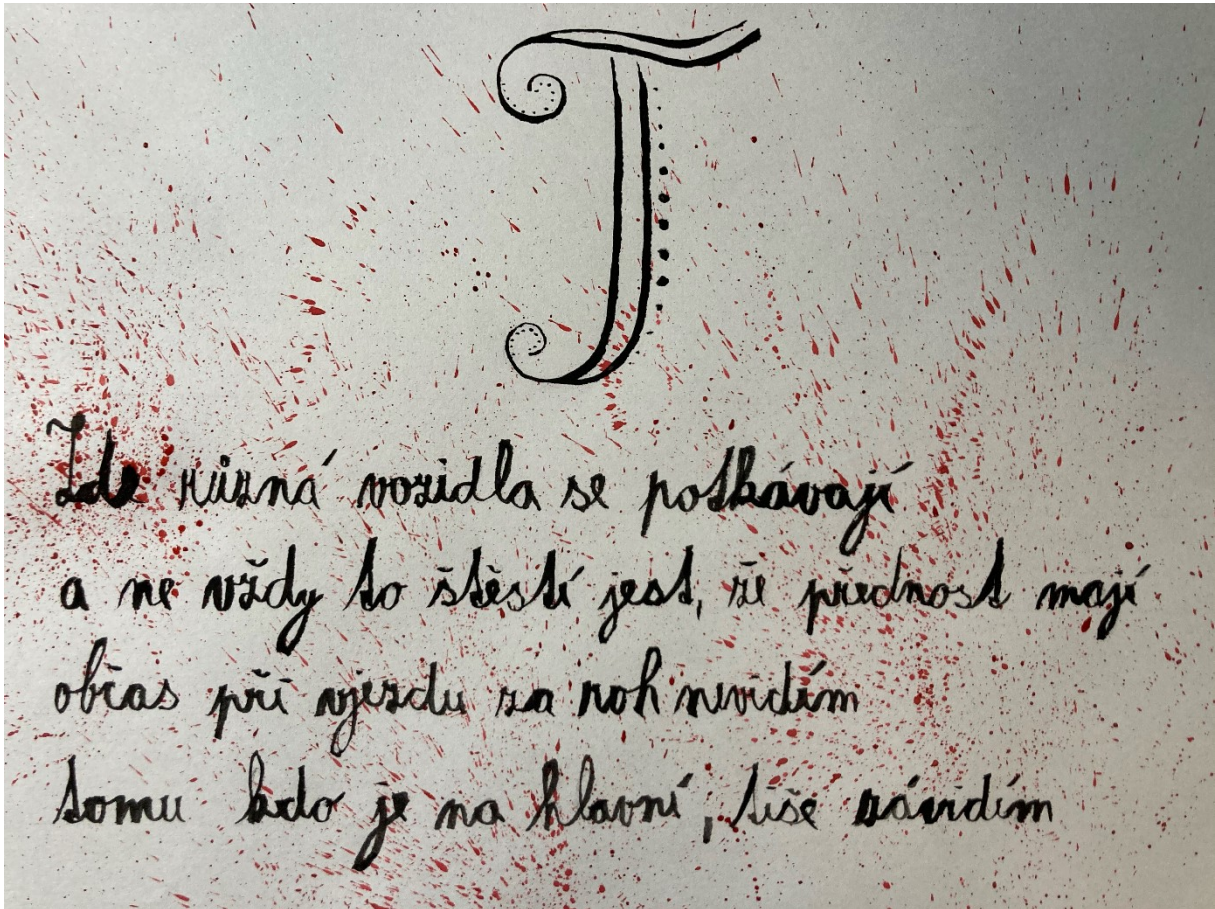 T
Zde různá vozidla se potkávají
a ne vždy to štěstí jest, že přednost mají
občas při vjezdu za roh nevidím
tomu kdo je na hlavní, tiše závidím